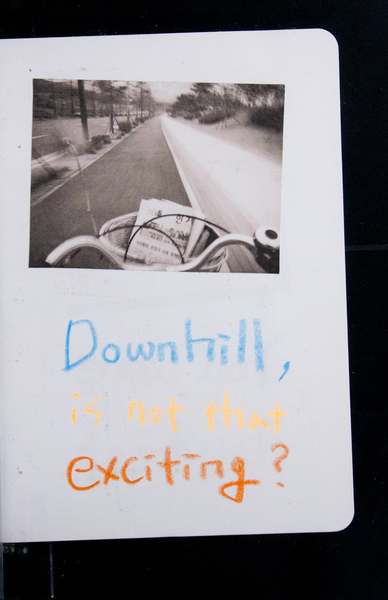 Downhill,
is not that
exciting?